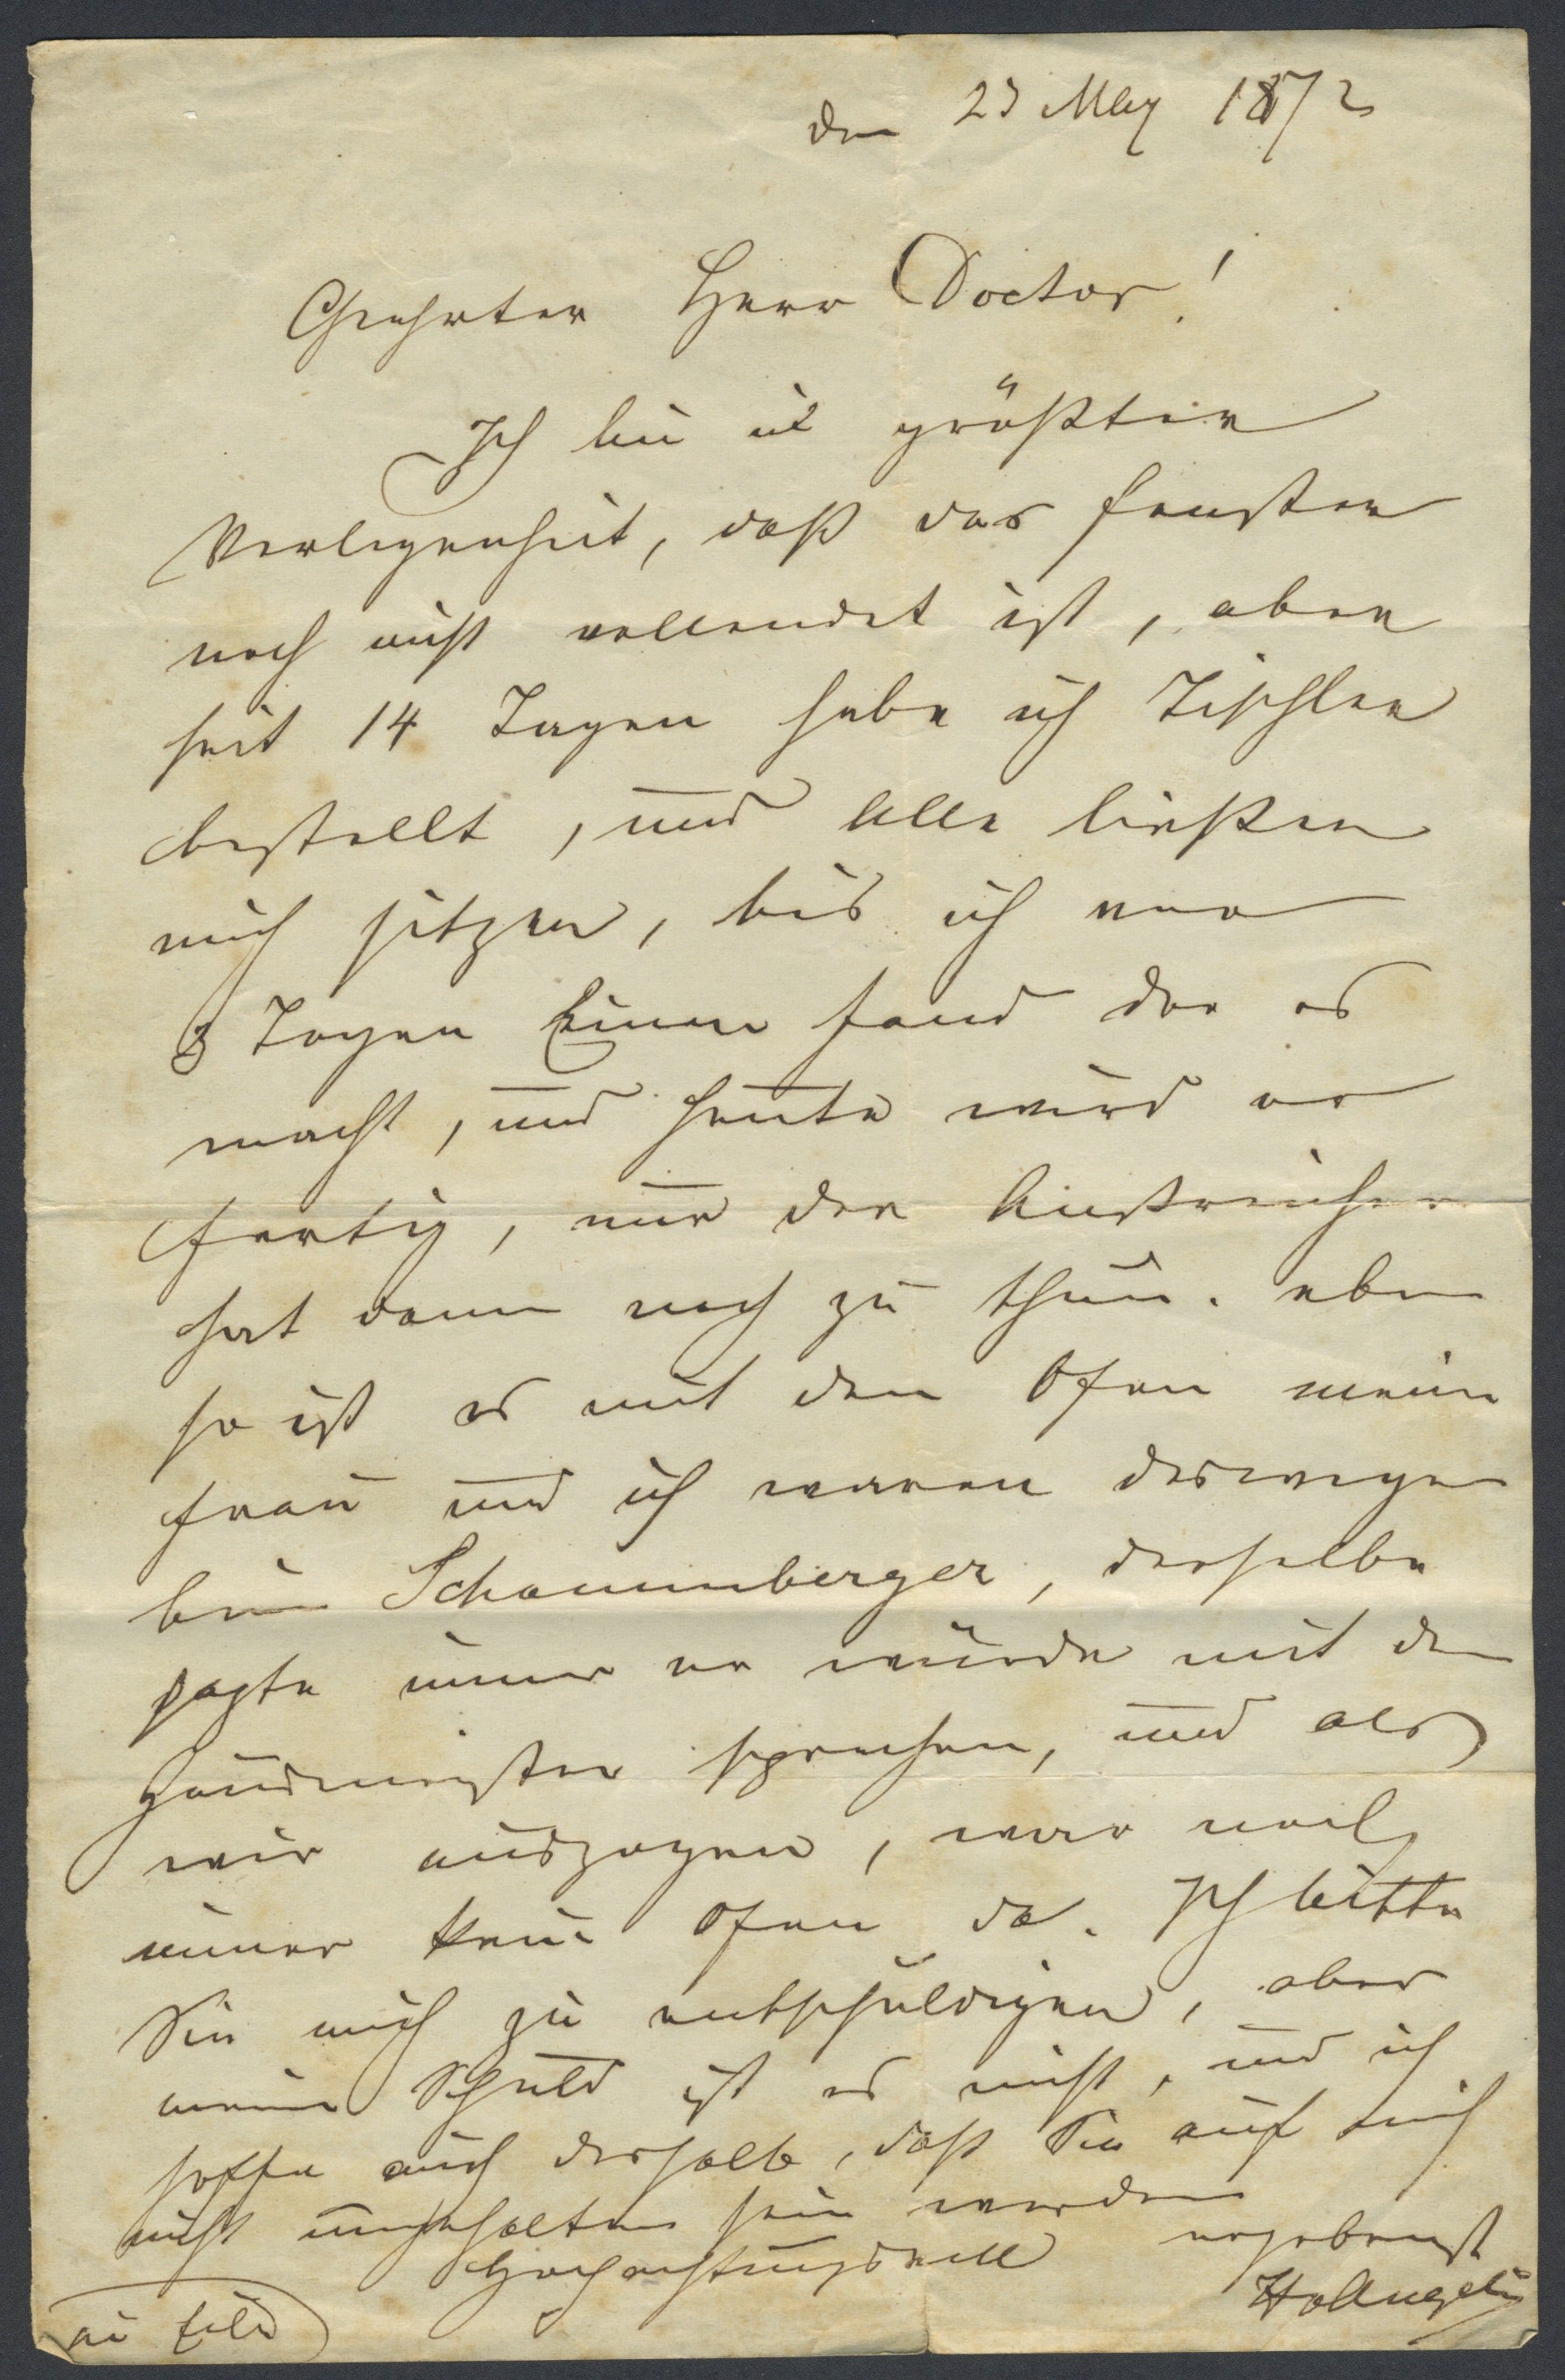 den 23 May 1872
Geehrter Herr Doctor!
Ich bin in größter
Verlegenheit, daß das Fenster
noch nicht vollendet ist, aber
seit 14 Tagen habe ich Tischler
bestellt, und Alle ließen
mich sitzen, bis ich vor
3 Tagen Einen fand der es
macht, und heute wird er
fertig, nur der Anstreicher
hat dann noch zu thun. eben
so ist es mit den Ofen meine
Frau und ich waren deswegen
beim Schaumberger, derselbe
sagte immer er würde mit dem
Hausmeister sprechen, und als
wir auszogen, war noch
immer kein Ofen da. Ich bitte
Sie mich zu entschuldigen, aber
meine Schuld ist es nicht, und ich
hoffe auch deshalb, daß Sie auf mich
nicht ungehalten sein werden
Hochachtungsvoll ergebenst
in Eile